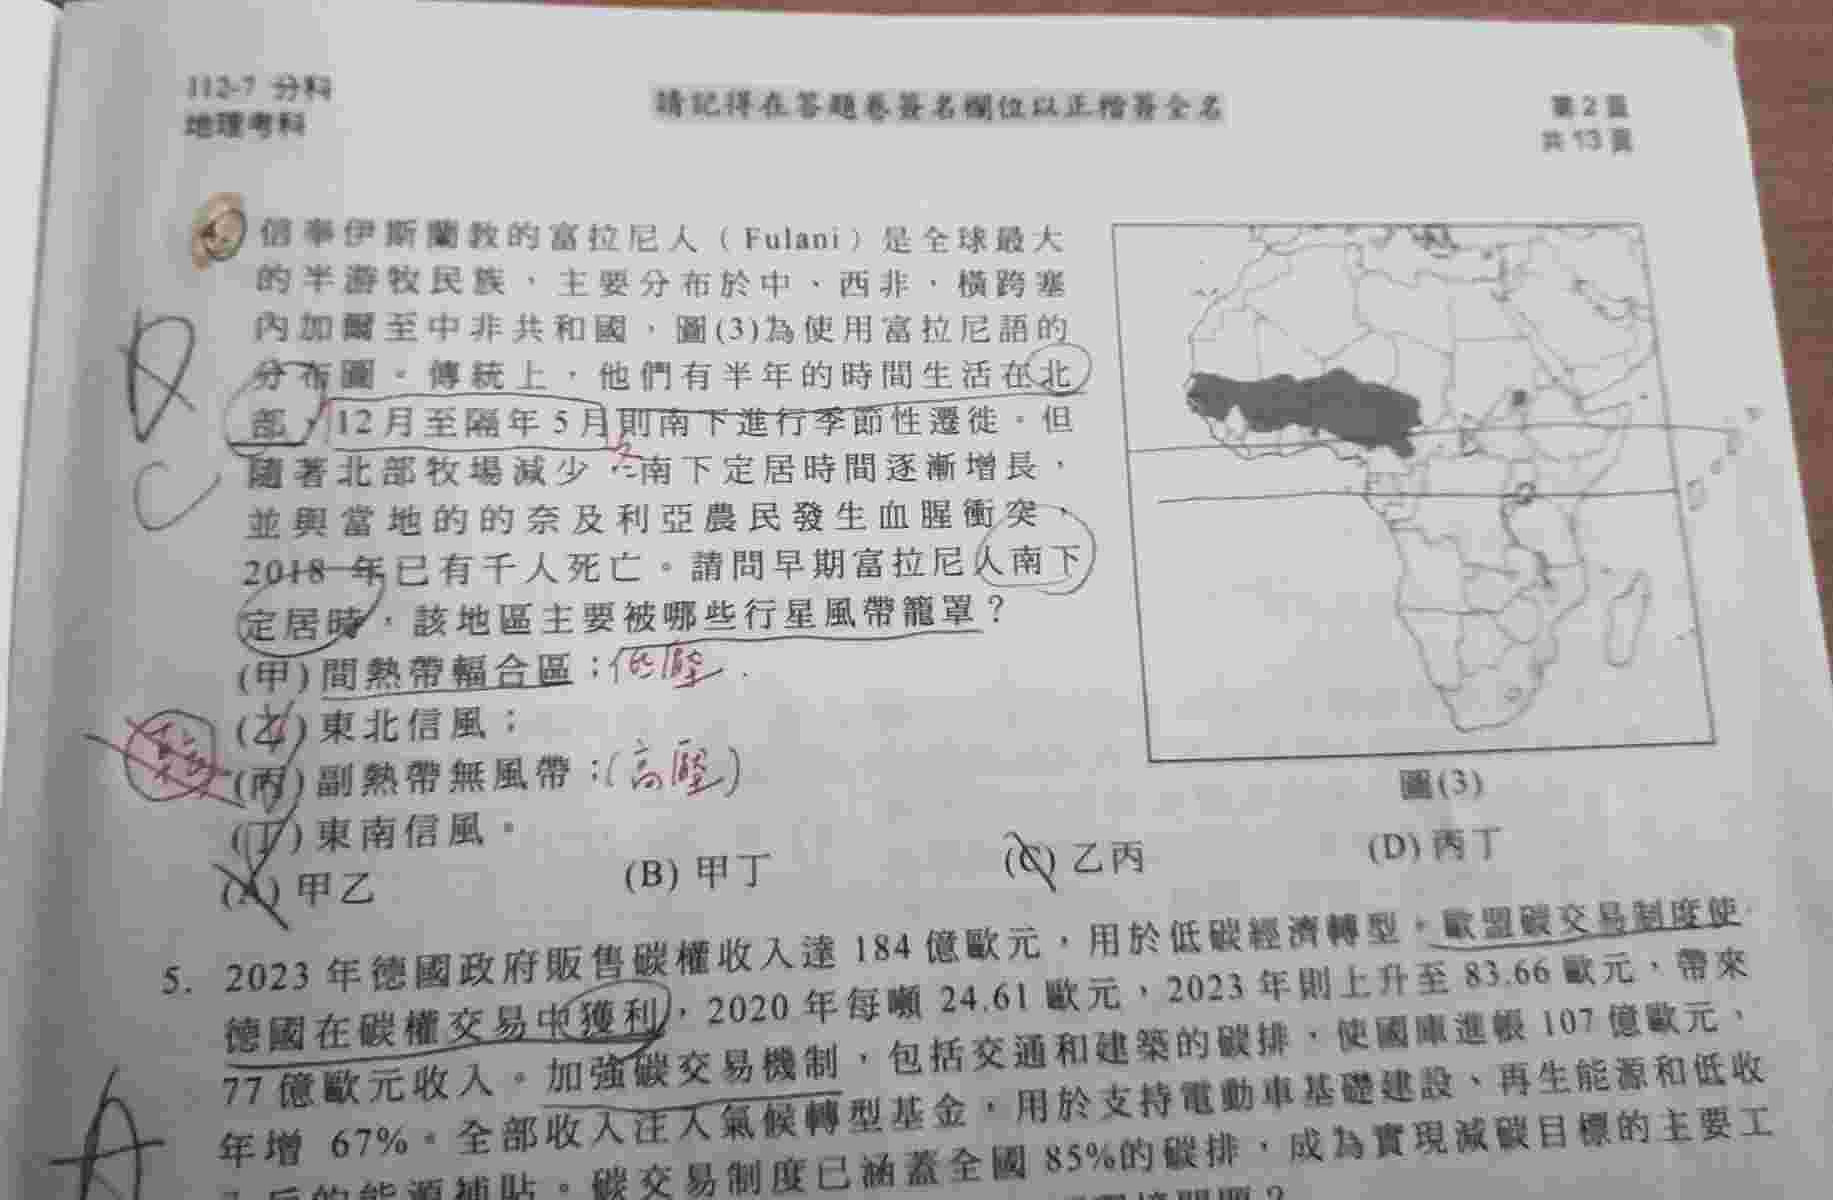 112-7 分科
地理考科
請記得在答題卷簽名欄位以正楷簽全名
第 2 頁
共 13 頁
4.
信奉伊斯蘭教的富拉尼人(Fulani)是全球最大
的半游牧民族，主要分布於中、西非，橫跨塞
內加爾至中非共和國，圖(3)為使用富拉尼語的
分布圖。傳統上，他們有半年的時間生活在北
部，12 月至隔年 5 月則南下進行季節性遷徙。但
隨著北部牧場減少，南下定居時間逐漸增長，
並與當地的的奈及利亞農民發生血腥衝突，
2018 年已有千人死亡。請問早期富拉尼人南下
定居時，該地區主要被哪些行星風帶籠罩？
(甲)間熱帶輻合區；低壓
(乙)東北信風；
(丙)副熱帶無風帶；(高壓)
(丁)東南信風。
(A) 甲乙
(B) 甲丁
(C) 乙丙
(D) 丙丁
圖(3)
C
5. 2023 年德國政府販售碳權收入達 184 億歐元，用於低碳經濟轉型。歐盟碳交易制度使
德國在碳權交易中獲利，2020 年每噸 24.61 歐元，2023 年則上升至 83.66 歐元，帶來
77 億歐元收入。加強碳交易機制，包括交通和建築的碳排，使國庫進帳 107 億歐元，
年增 67%。全部收入注入氣候轉型基金，用於支持電動車基礎建設、再生能源和低收
A
的能源補貼。碳交易制度已涵蓋全國 85%的碳排，成為實現減碳目標的主要工